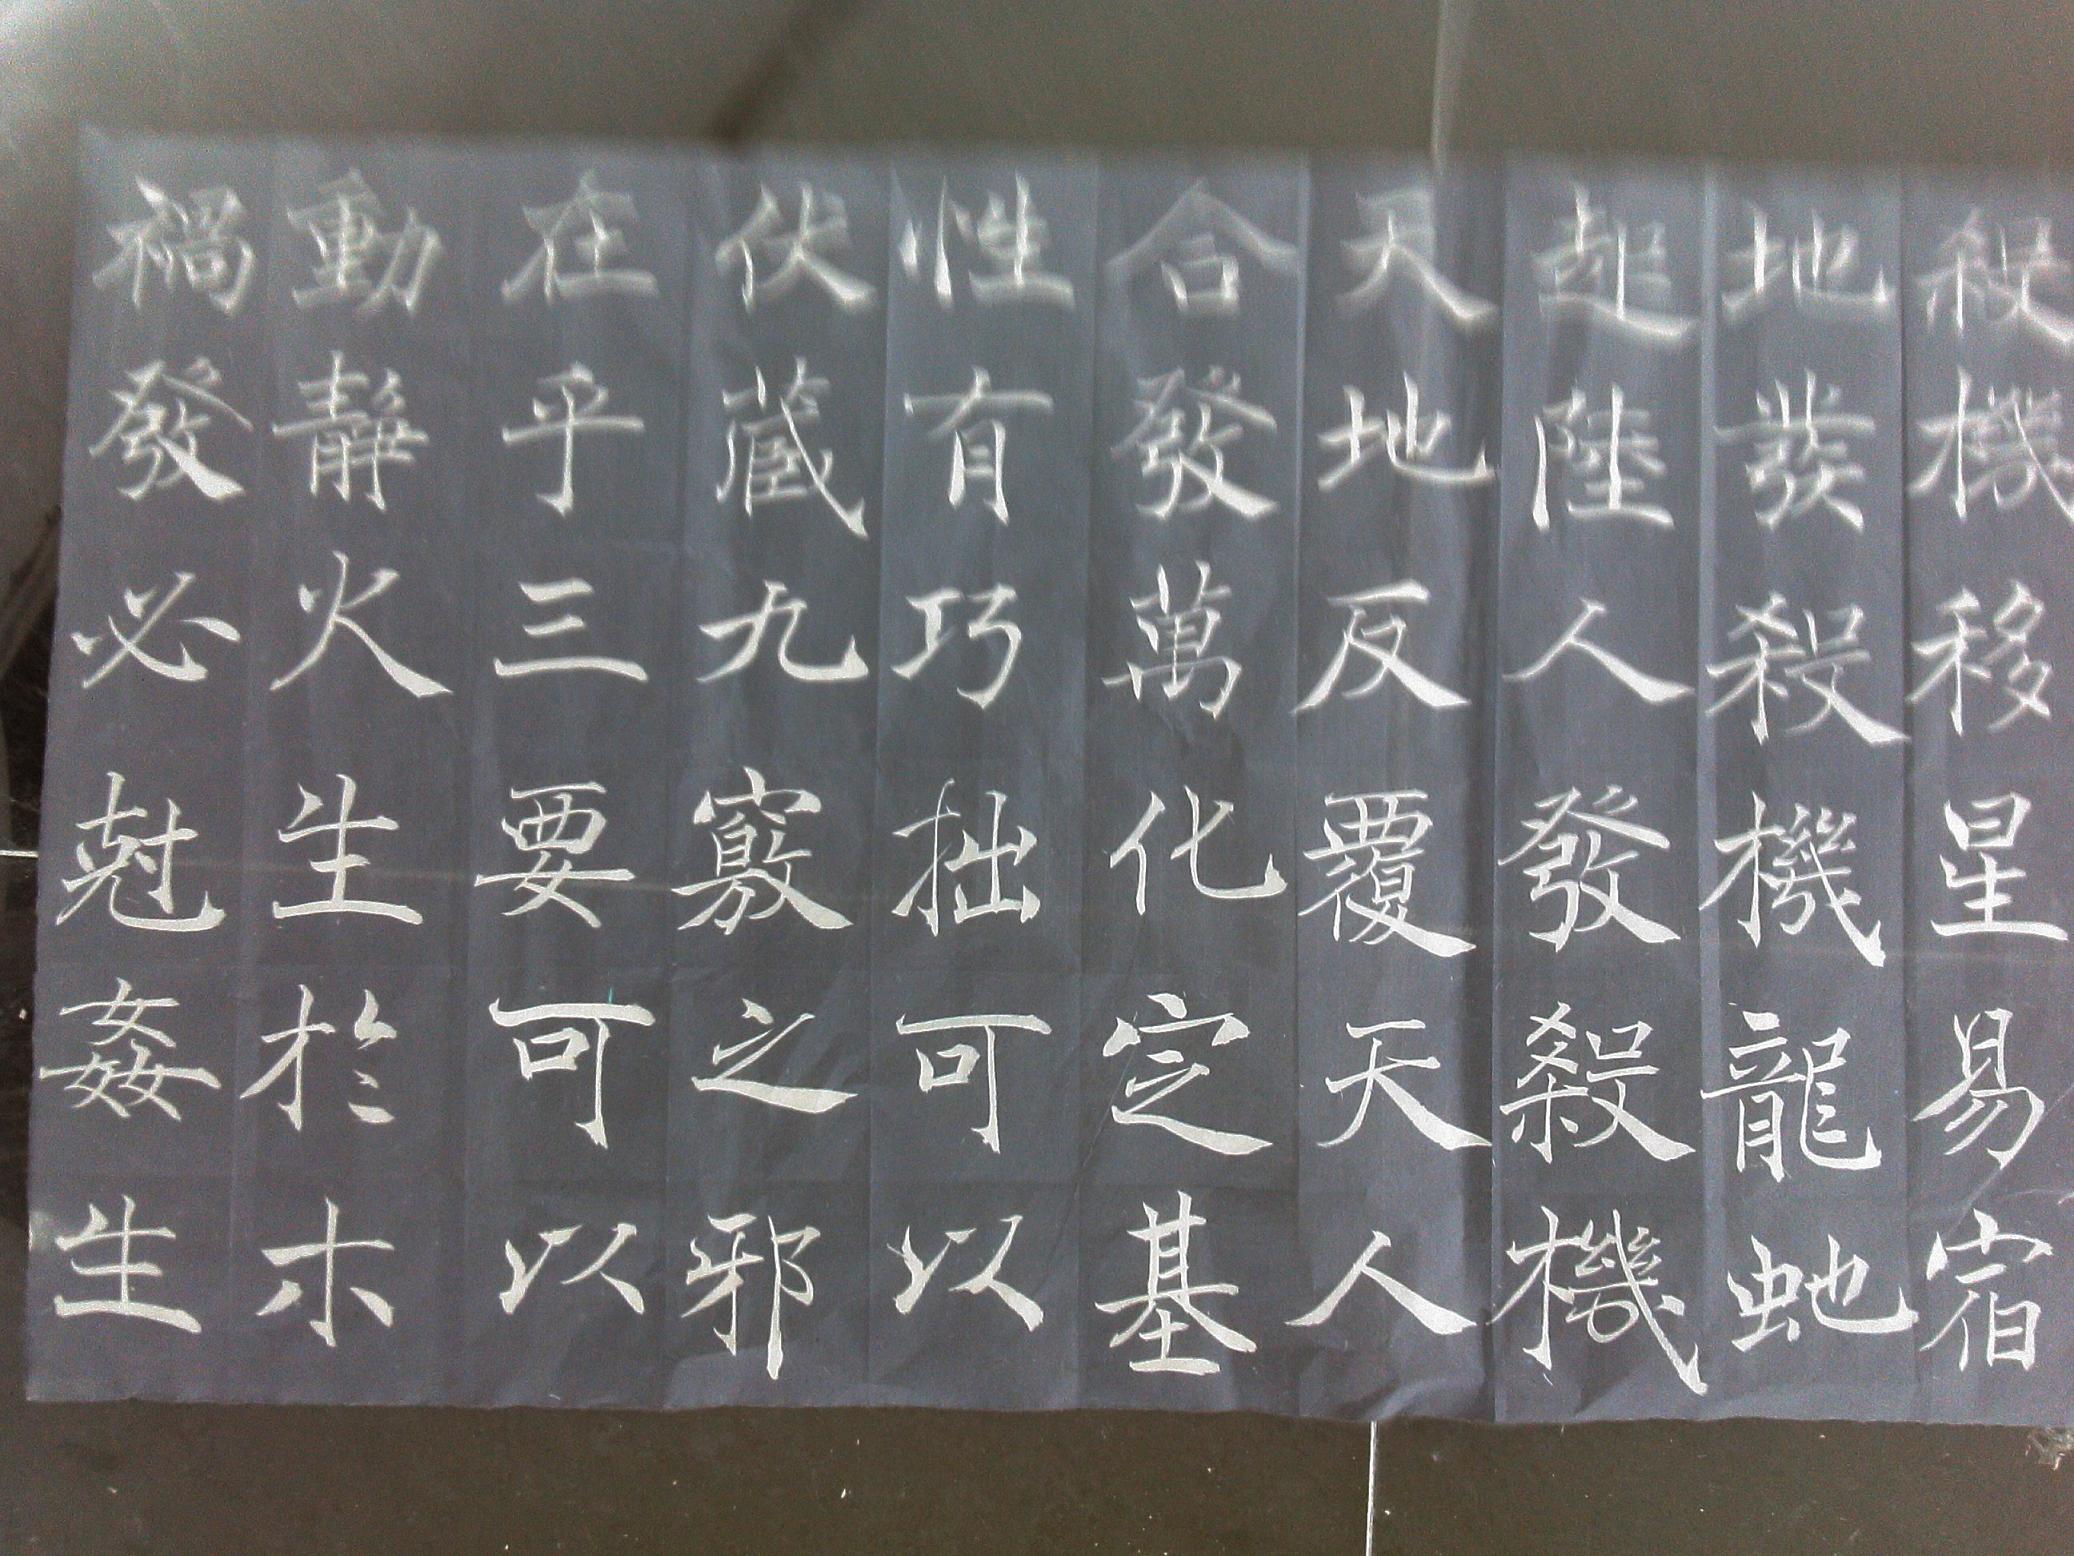 殺機移星易宿
地發殺機龍蛇
起陸人發殺機
天地反覆天人
合發萬化定基
性有巧拙可以
伏藏九竅之邪
在乎三要可以
動靜火生於木
禍發必尅姦生